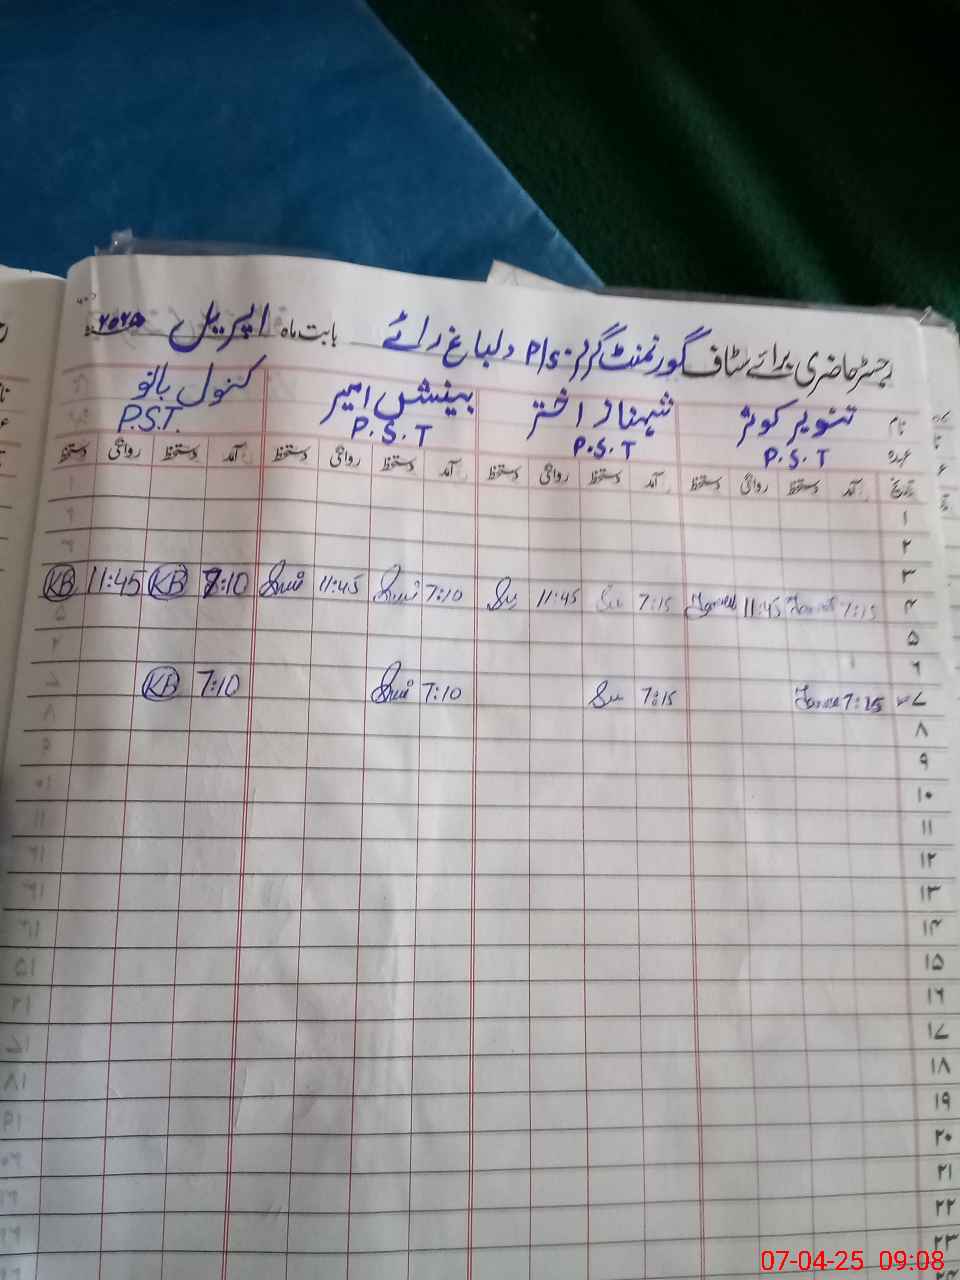 رجسٹر حاضری برائے سٹاف گورنمنٹ گرلز P/S دلباغ رائے بابت ماہ اپریل ۲۰۲۵
نام تنویر کوثر شہناز اختر بینش امیر کنول بانو
عہدہ P.S.T P.S.T P.S.T P.S.T.
تاریخ آمد دستخط روانگی دستخط آمد دستخط روانگی دستخط آمد دستخط روانگی دستخط آمد دستخط روانگی دستخط
۱
۲
۳
۴ 7:15 11:45 7:15 Su 11:45 Su 7:10 11:45 7:10 KB 11:45 KB
۵
۶
۷ 7:15 7:15 Su 7:10 7:10 KB
۸
۹
۱۰
۱۱
۱۲
۱۳
۱۴
۱۵
۱۶
۱۷
۱۸
۱۹
۲۰
۲۱
۲۲
۲۳
07-04-25 09:08